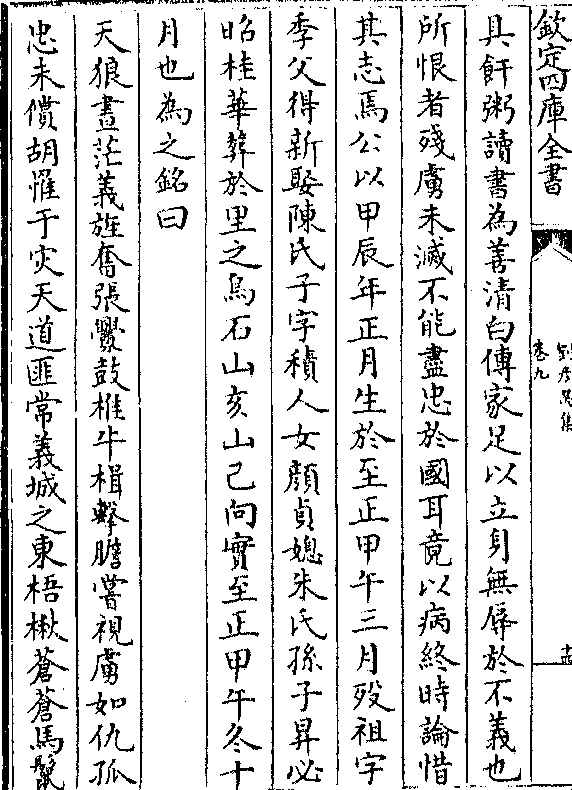 欽定四庫全書
卷九
具飦粥讀書為善清白傳家足以立身無辱於不義也
所恨者殘虜未滅不能盡忠於國耳竟以病終時論惜
其志焉公以甲辰年正月生於至正甲午三月歿祖字
季父得新娶陳氏子字積人女顔貞媳朱氏孫子昇必
昭桂華葬於里之烏石山亥山己向實至正甲午冬十
月也為之銘曰
天狼晝茫義旌奮張釁鼓椎牛楫擊膽嘗視虜如仇孤
忠未償胡罹于灾天道匪常義城之東梧楸蒼蒼馬鬛